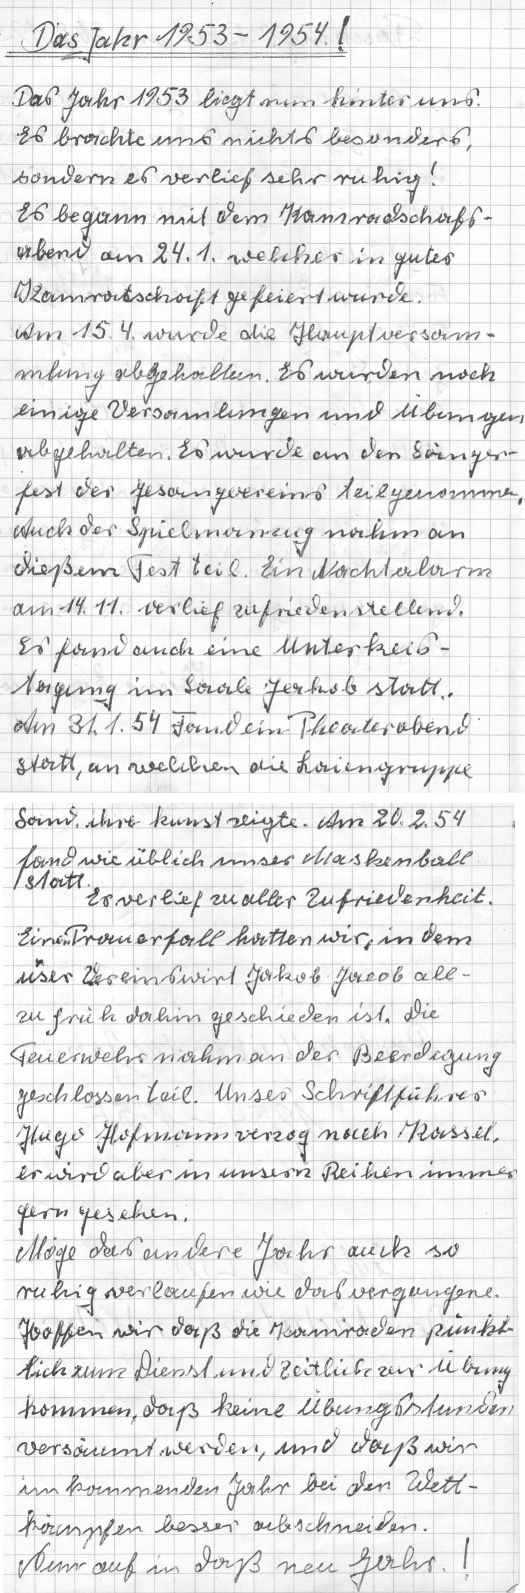 Das Jahr 1953 - 1954.!
Das Jahr 1953 liegt nun hinter uns.
Es brachte uns nichts besonders,
sondern es verlief sehr ruhig!
Es begann mit dem Kamradschafs-
abend am 24.1. welcher in guter
Kamratschaft gefeiert wurde.
Am 15.4. wurde die Hauptversam-
mlung abgehalten. Es wurden noch
einige Versamlungen und Übungen
abgehalten. Es wurde an den Sänger-
fest des Gesangvereins teilgenommen,
Auch der Spielmanzug nahm an
dießem Fest teil. Ein Nachtalarm
am 14.11. verlief zufriedenstellend.
Es fand auch eine Unterkeis-
tagung im Saale Jakob statt.
Am 31.1.54 Fand ein Theaterabend
statt, an welchen die Laiengruppe
Sand. ihre kunst zeigte. Am 20.2.54
fand wie üblich unser Maskenball
statt.
Er verlief zu aller Zufriedenheit.
Einen Trauerfall hatten wir, in dem
unser Vereinswirt Jakob Jacob all-
zu früh dahin geschieden ist. Die
Feuerwehr nahm an der Beerdegung
geschlossen teil. Unser Schriftführer
Hugo Hofmann verzog nach Kassel,
er wird aber in unsern Reihen immer
gern gesehen.
Möge das andere Jahr auch so
ruhig verlaufen wie das vergangene.
Hoffen wir daß die Kamraden pünkt-
lich zum Dienst und zeitlich zur Übung
kommen, daß keine Übungsstunden
versäumt werden, und daß wir
im kommenden Jahr bei den Wett-
kämpfen besser abschneiden.
Nun auf in daß neu Jahr.!